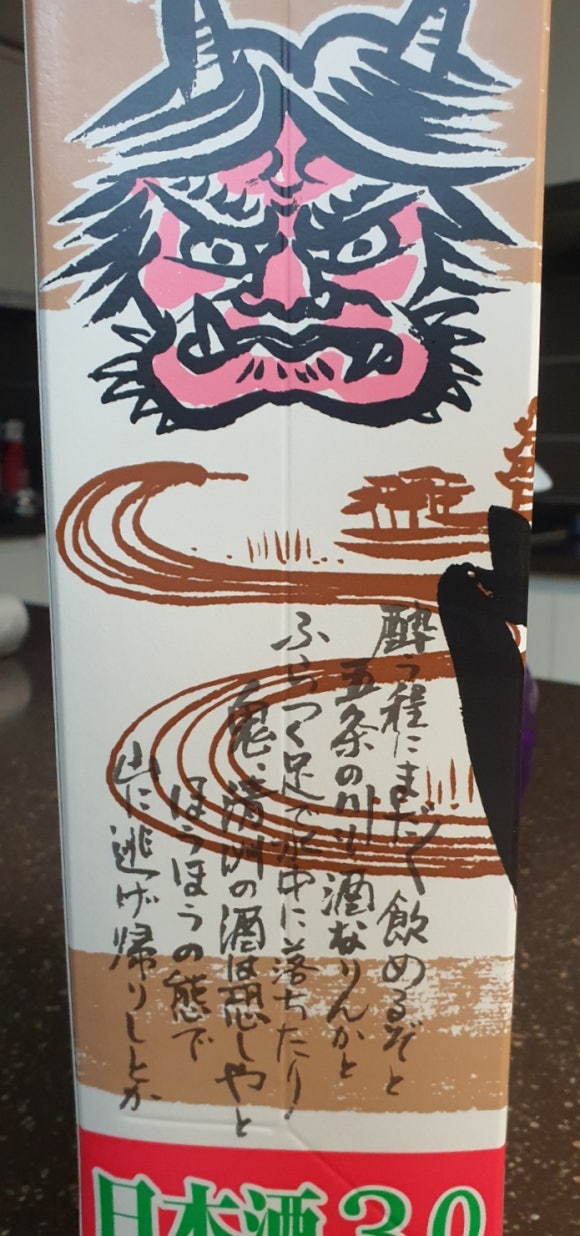 酔う程にまだまだ飲めるぞと
五条の川も酒なりんかと
ふらつく足で水中に落ちたり
鬼、清洲の酒は恐しやと
ほうほうの態で
山に逃げ帰りしとか
日本酒3.0